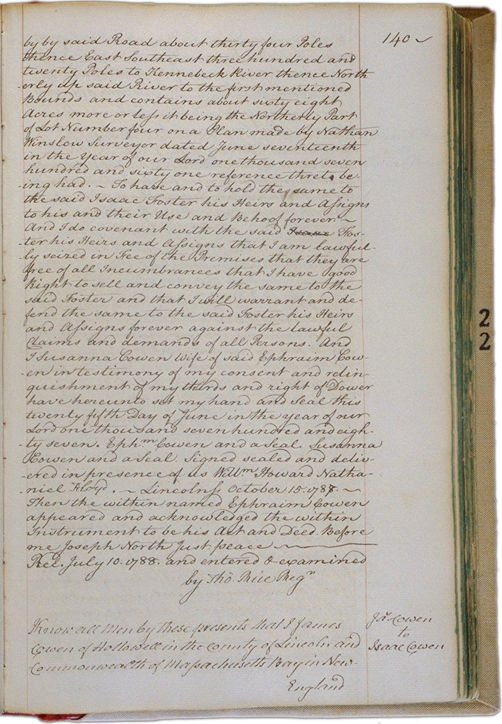 140
by by said Road about thirty four Poles
thence East Southeast three hundred and
twenty Poles to Kennebeck River thence North
erly up said River to the first mentioned
Bounds and contains about sixty eight
Acres more or less it being the Northerly Part
of Lot Number four on a Plan made by Nathan
Winslow Surveyor dated June seventeenth
in the Year of our Lord one thousand seven
hundred and sixty one reference thereto be-
ing had. ~ To have and to hold the same to
the said Isaac Foster his Heirs and Assigns
to his and their Use and Behoof forever ~
And I do covenant with the said Isaac Fos-
ter his Heirs and Assigns that I am lawful-
ly seized in Fee of the Premises that they are
free of all Incumbrances that I have good
Right to sell and convey the same to the
said Foster and that I will warrant and de-
fend the same to the said Foster his Heirs
and Assigns forever against the lawful
Claims and demands of all Persons. And
I Susanna Cowen Wife of said Ephraim Cow-
en in testimony of my consent and relin-
quishment of my thirds and right of Dower
have hereunto set my hand and Seal this
twenty fifth Day of June in the year of our
Lord one thousand seven hundred and eigh-
ty seven. Ephm Cowen and a Seal. Susanna
Cowen and a Seal. Signed sealed and deliv-
ered in presence of us Willm Howard Natha-
niel Floyd. ~ Lincolnss October 15. 1788. ~
Then the within named Ephraim Cowen
appeared and acknowledged the within
Instrument to be his Act and Deed Before
me Joseph North Just peace
Rec. July 10. 1788. and entered & examined
by Tho. Rice Regr
Know all Men by these presents that I James
Cowen of Hollowell in the County of Lincoln and
Commonwealth of Massachusetts Bay in New-
England
Jas. Cowen
to
Isaac Cowen
2
2